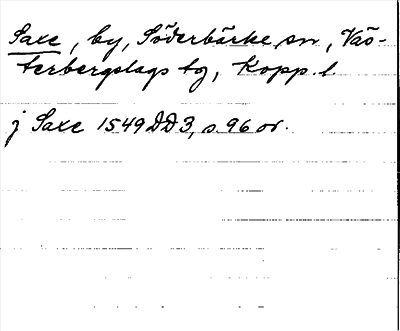 Saxe, by, Söderbärke sn, Väs-
terbergslags tg, Kopp. l.
j Saxe 1549 DD3, s. 96 or.